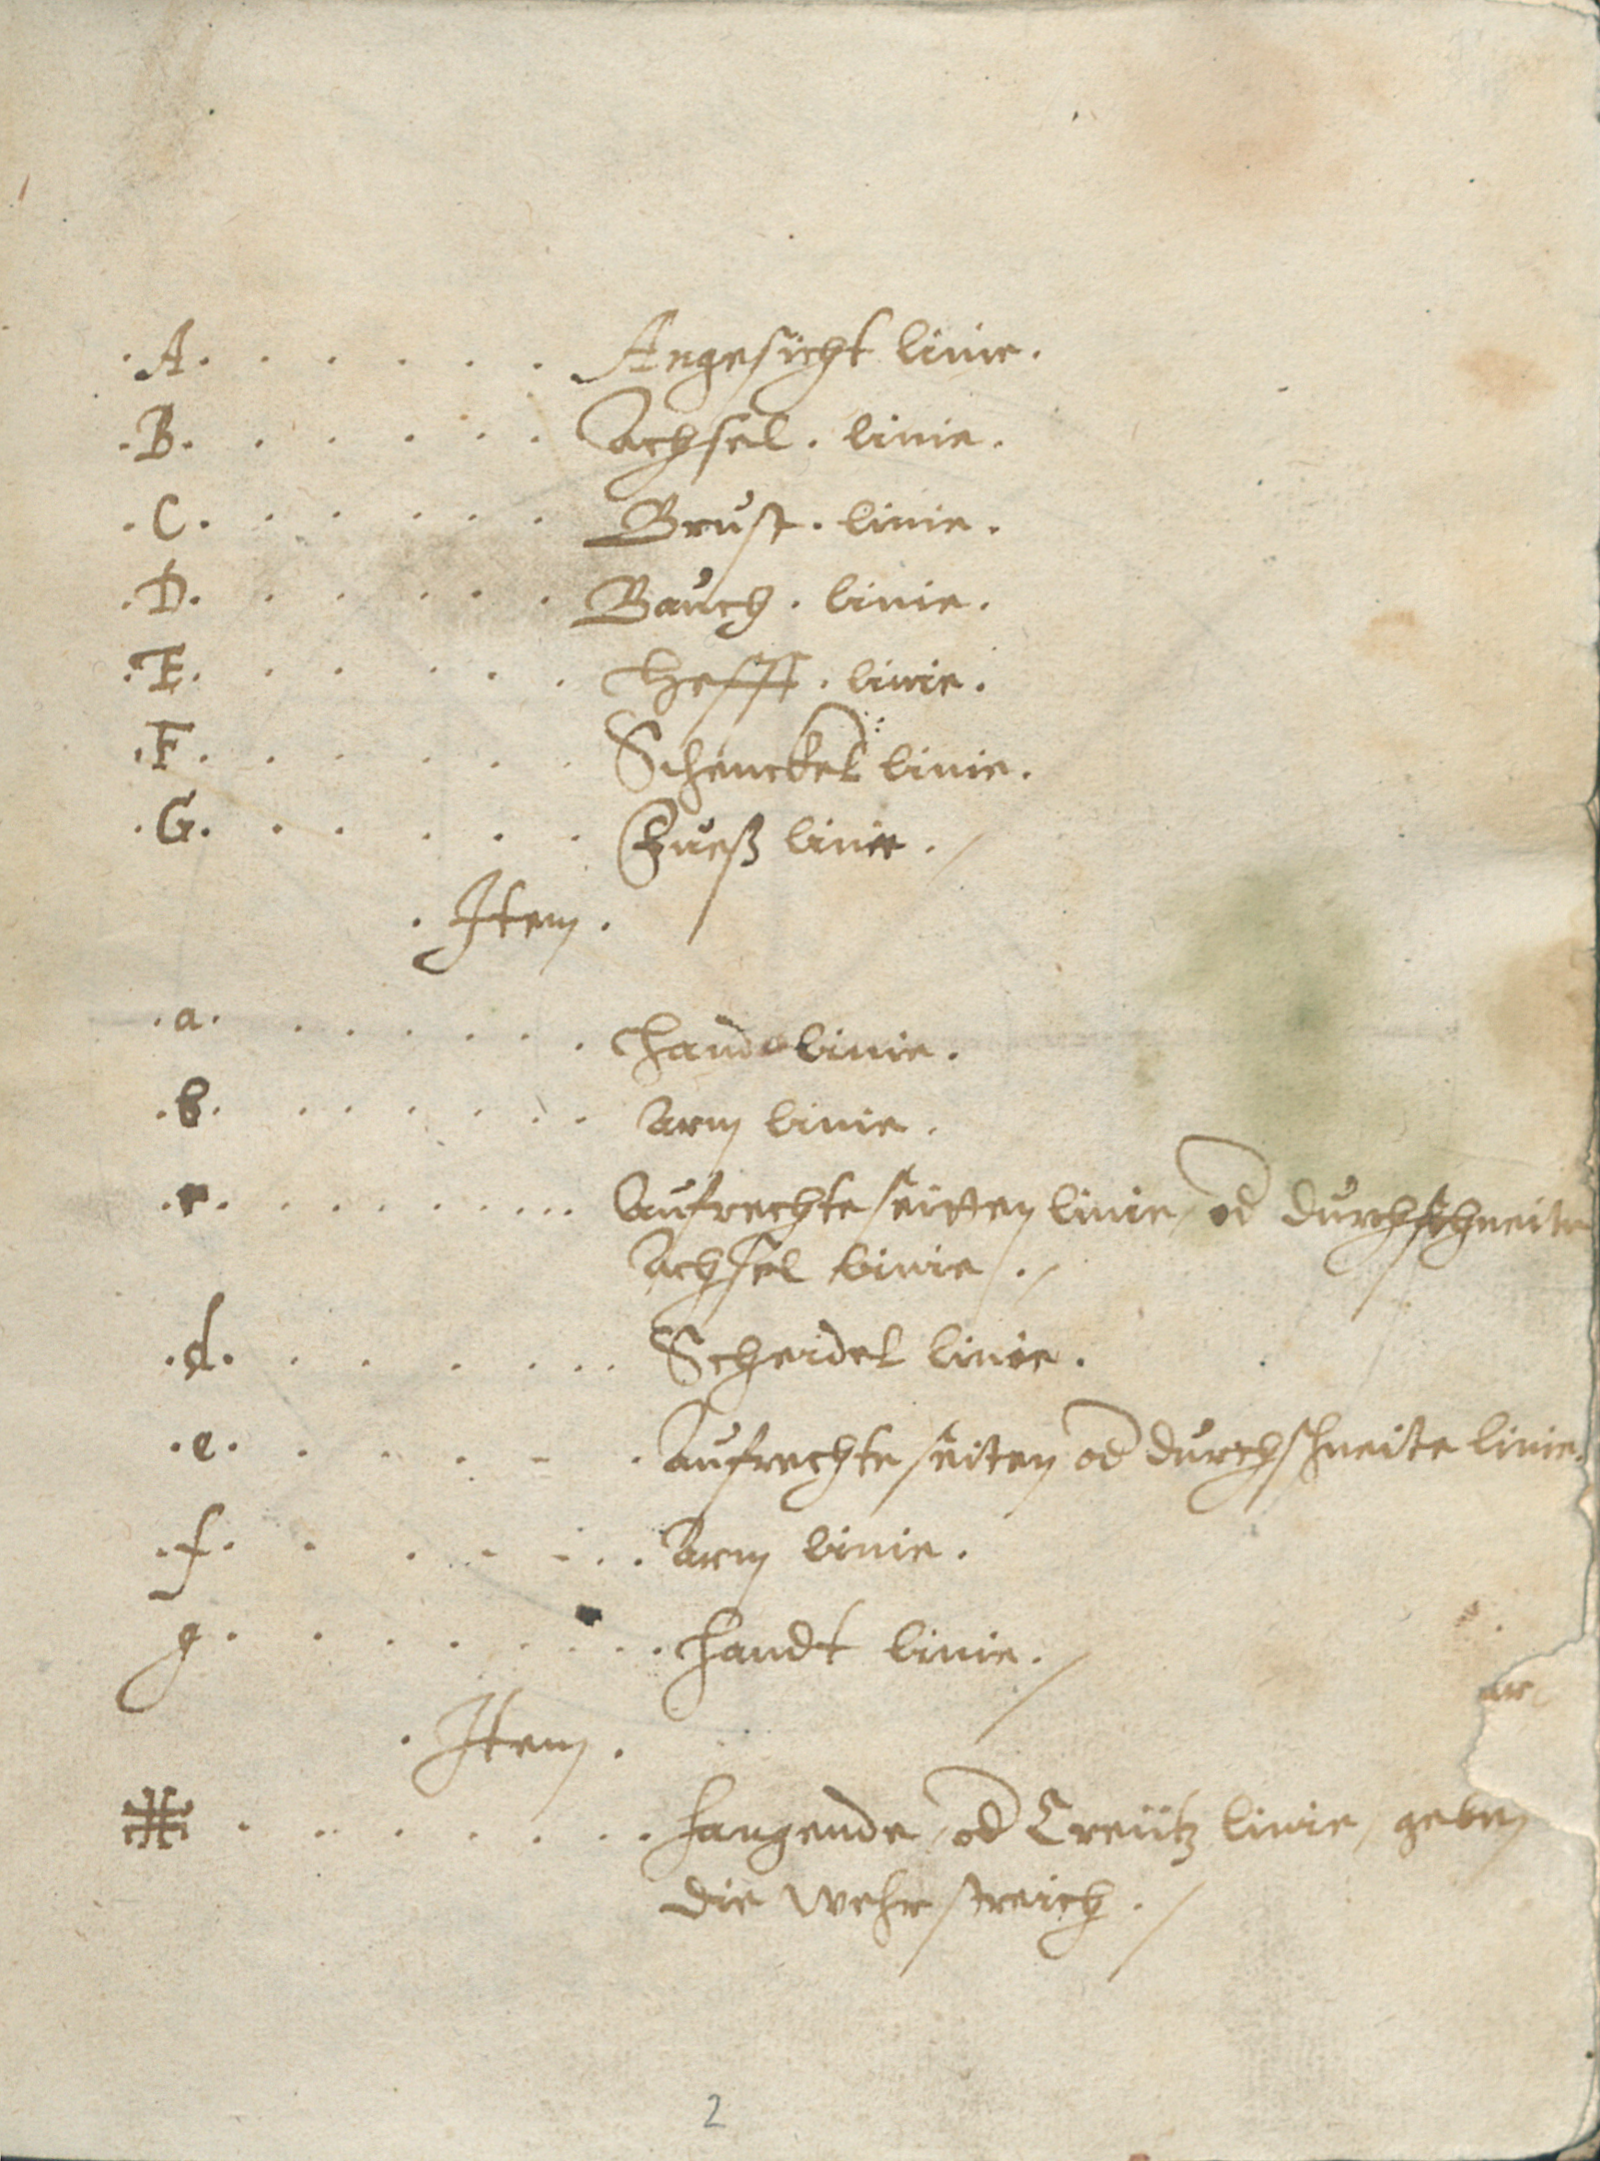 .A. . . . . . Angesicht linie.
.B. . . . . . Achsel . linie.
.C. . . . . . Brust . linie.
.D. . . . . . Bauch . linie.
.E. . . . . . Hefft . linie.
.F. . . . . . Schenckel linie.
.G. . . . . . Fueß linie . /
. Item .
.a. . . . . . Hand linie.
.b. . . . . . Arm linie.
.c. . . . . . Aufrechte seitten linie / od durchschneite
Achsel linie . /
.d. . . . . . Scheidel linie.
.e. . . . . . Aufrechte seiten od durchschneite linie.
.f. . . . . . Arm linie.
g. . . . . . Handt linie. /
. Item .
. . . . . . hangende / od Creütz linie / geben
die wehr streich . /
2